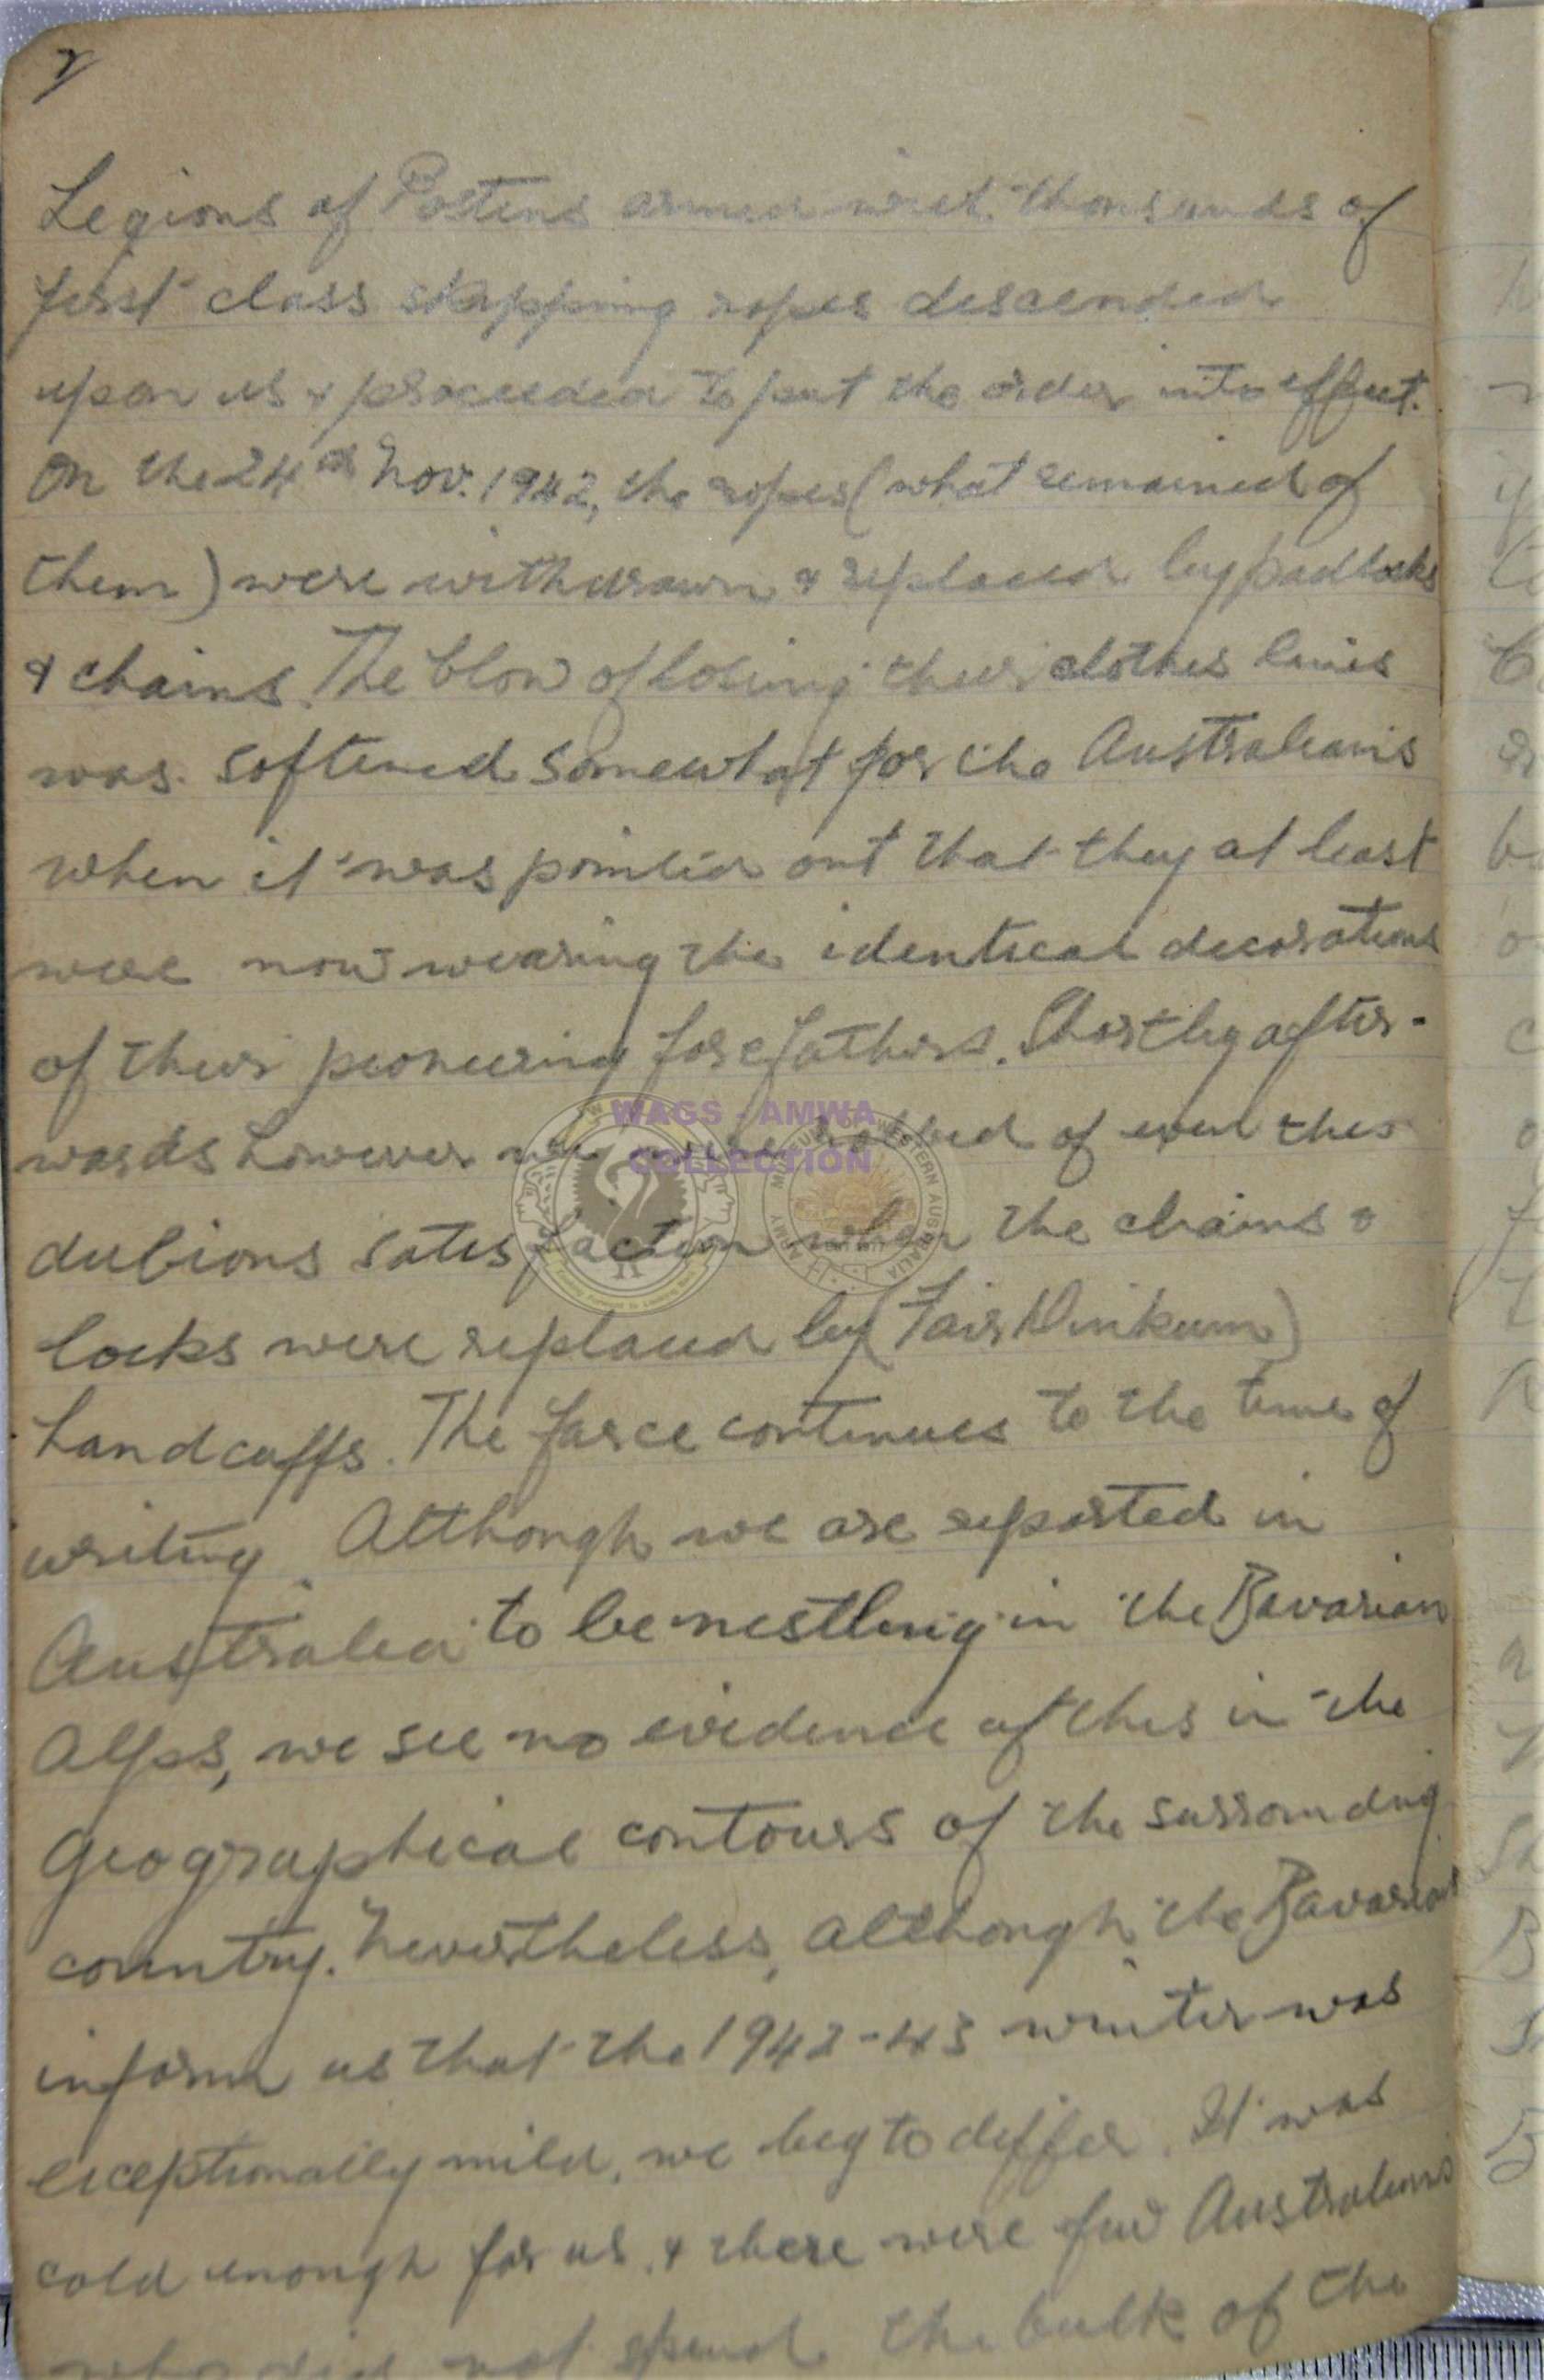 2
Legions of Postens armed with thousands of
first class skipping ropes descended
upon us & proceeded to put the order into effect.
On the 24th Nov. 1942, the ropes (what remained of
them) were withdrawn & replaced by padlocks
& chains. The blow of losing their clothes lines
was softened somewhat for the Australians
when it was pointed out that they at least
were now wearing the identical decorations
of their pioneering forefathers. Shortly after-
wards however we were robbed of even this
dubious satisfaction when the chains &
locks were replaced by (Fair Dinkum)
handcuffs. The farce continues to the time of
writing. Although we are reported in
Australia to be nestling in the Bavarian
Alps, we see no evidence of this in the
geographical contours of the surrounding
country. Nevertheless, although the Bavarians
inform us that the 1942-43 winter was
exceptionally mild, we beg to differ. It was
cold enough for us, & there were few Australians
who did not spend the bulk of the
WAGS - AMWA
COLLECTION